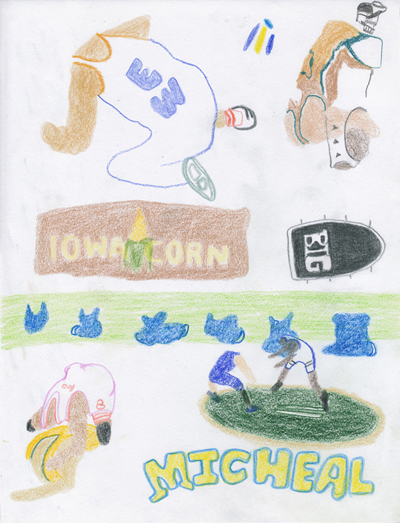 IOWA CORN
BIG
MICHEAL